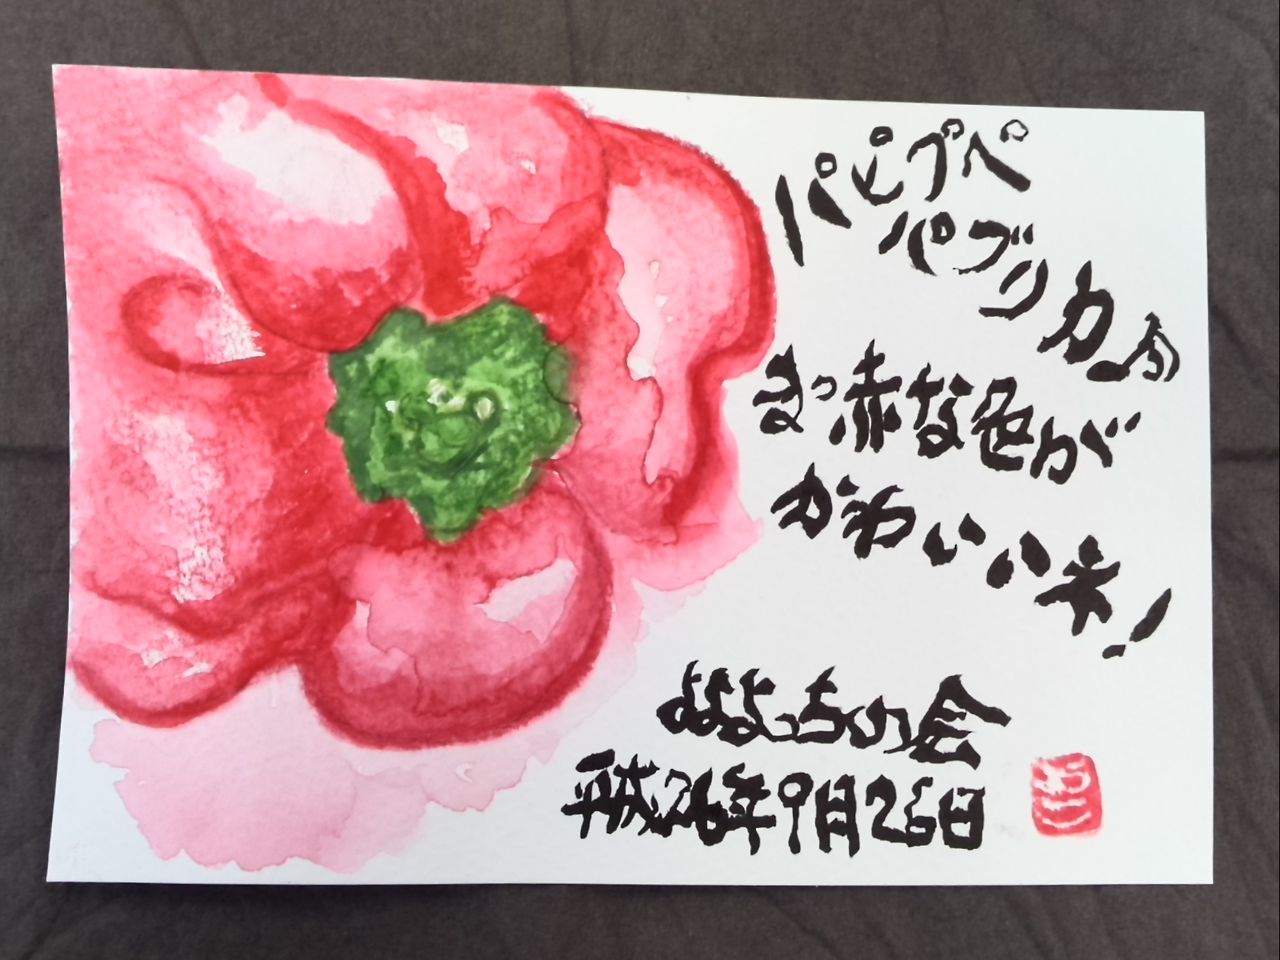 パピプペ
パプリカの
まっ赤な色が
かわいいネ!
およよっちの会
平成26年9月26日